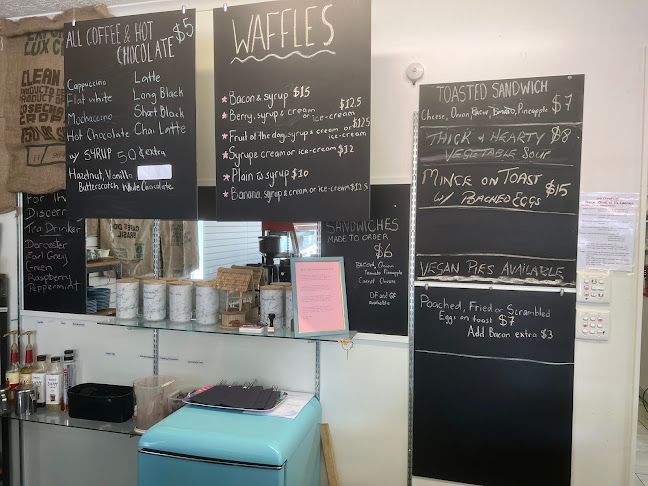 ALL COFFEE & HOT
CHOCOLATE $5
Cappuccino
Latte
Flat white
Long Black
Mochaccino
Short Black
Hot Chocolate
Chai Latte
w/ SYRUP 50¢ extra
Hazelnut, Vanilla
Butterscotch
White Chocolate
WAFFLES
Bacon & syrup $15
Berry, syrup & cream or ice-cream $12.5
Fruit of the day, syrup & cream or ice-cream $12.5
Syrup & cream or ice-cream $12
Plain w/ syrup $10
Banana, syrup & cream or ice-cream $12.5
TOASTED SANDWICH
Cheese, Onion, Bacon, Tomato, Pineapple $7
THICK & HEARTY $8
VEGETABLE SOUP
MINCE ON TOAST
W/ POACHED EGGS $15
VEGAN PIES AVAILABLE
Poached, Fried or Scrambled
Eggs on toast $7
Add Bacon extra $3
SANDWICHES
MADE TO ORDER
$6
Tomato Pineapple
DF and GF
available
For Th
Discern
Tea Drinker
Dorcester
Earl Grey
Green
Raspberry
Peppermint
LUX C
CLEAN
PRODUCTO D
PRODUCT OF
BRASIL